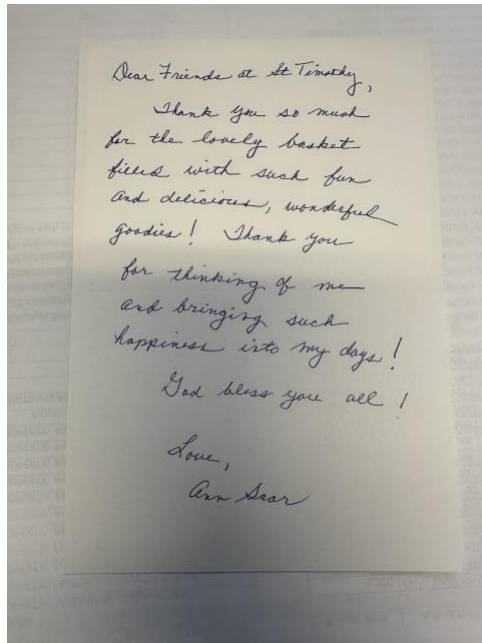 Dear Friends at St Timothy,
Thank you so much
for the lovely basket
filled with such fun
and delicious, wonderful
goodies! Thank you
for thinking of me
and bringing such
happiness into my days!
God bless you all!
Love,
Ann Saar